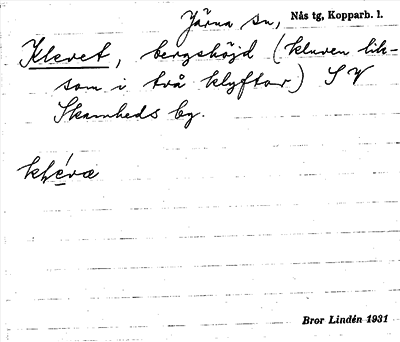 Järna sn, Nås tg, Kopparb. l.
Klevet, bergshöjd (kluven lik-
som i två klyftor) S V
Skamheds by.
kḷèvæ
Bror Lindén 1931